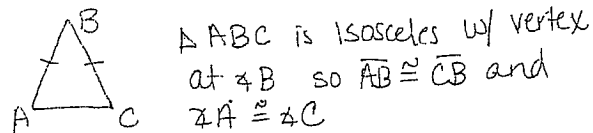 B
A
C
△ABC is isosceles w/ vertex
at ∡B so A̅B̅ ≅ C̅B̅ and
∡A ≅ ∡C